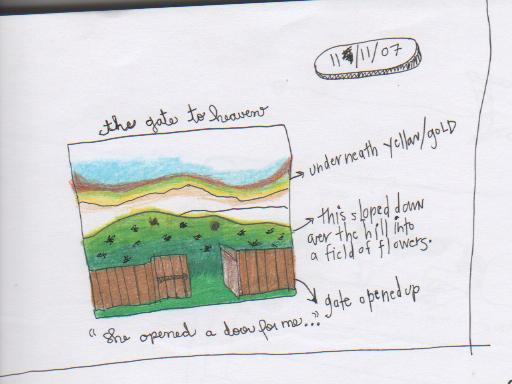 11/11/07
the gate to heaven
underneath yellow/gold
this sloped down
over the hill into
a field of flowers.
gate opened up
"she opened a door for me..."